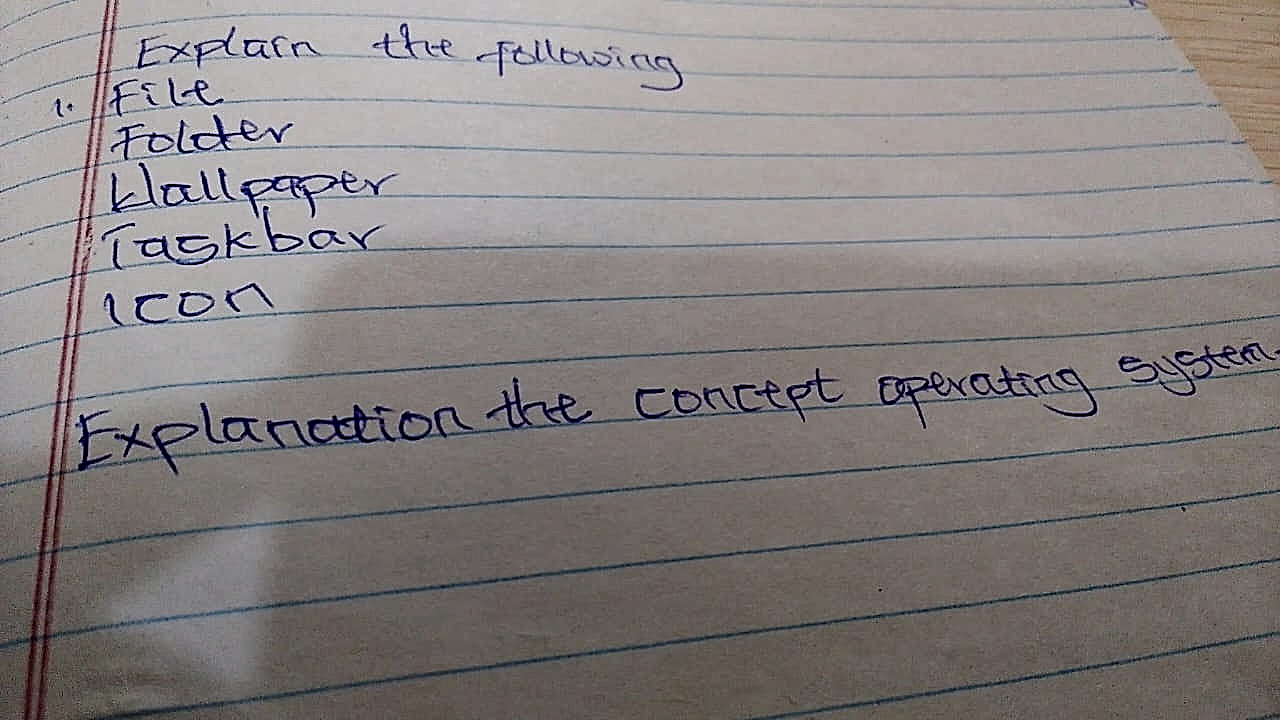 Explain the following
1. File
Folder
Wallpaper
Taskbar
Icon
Explanation the concept operating system.